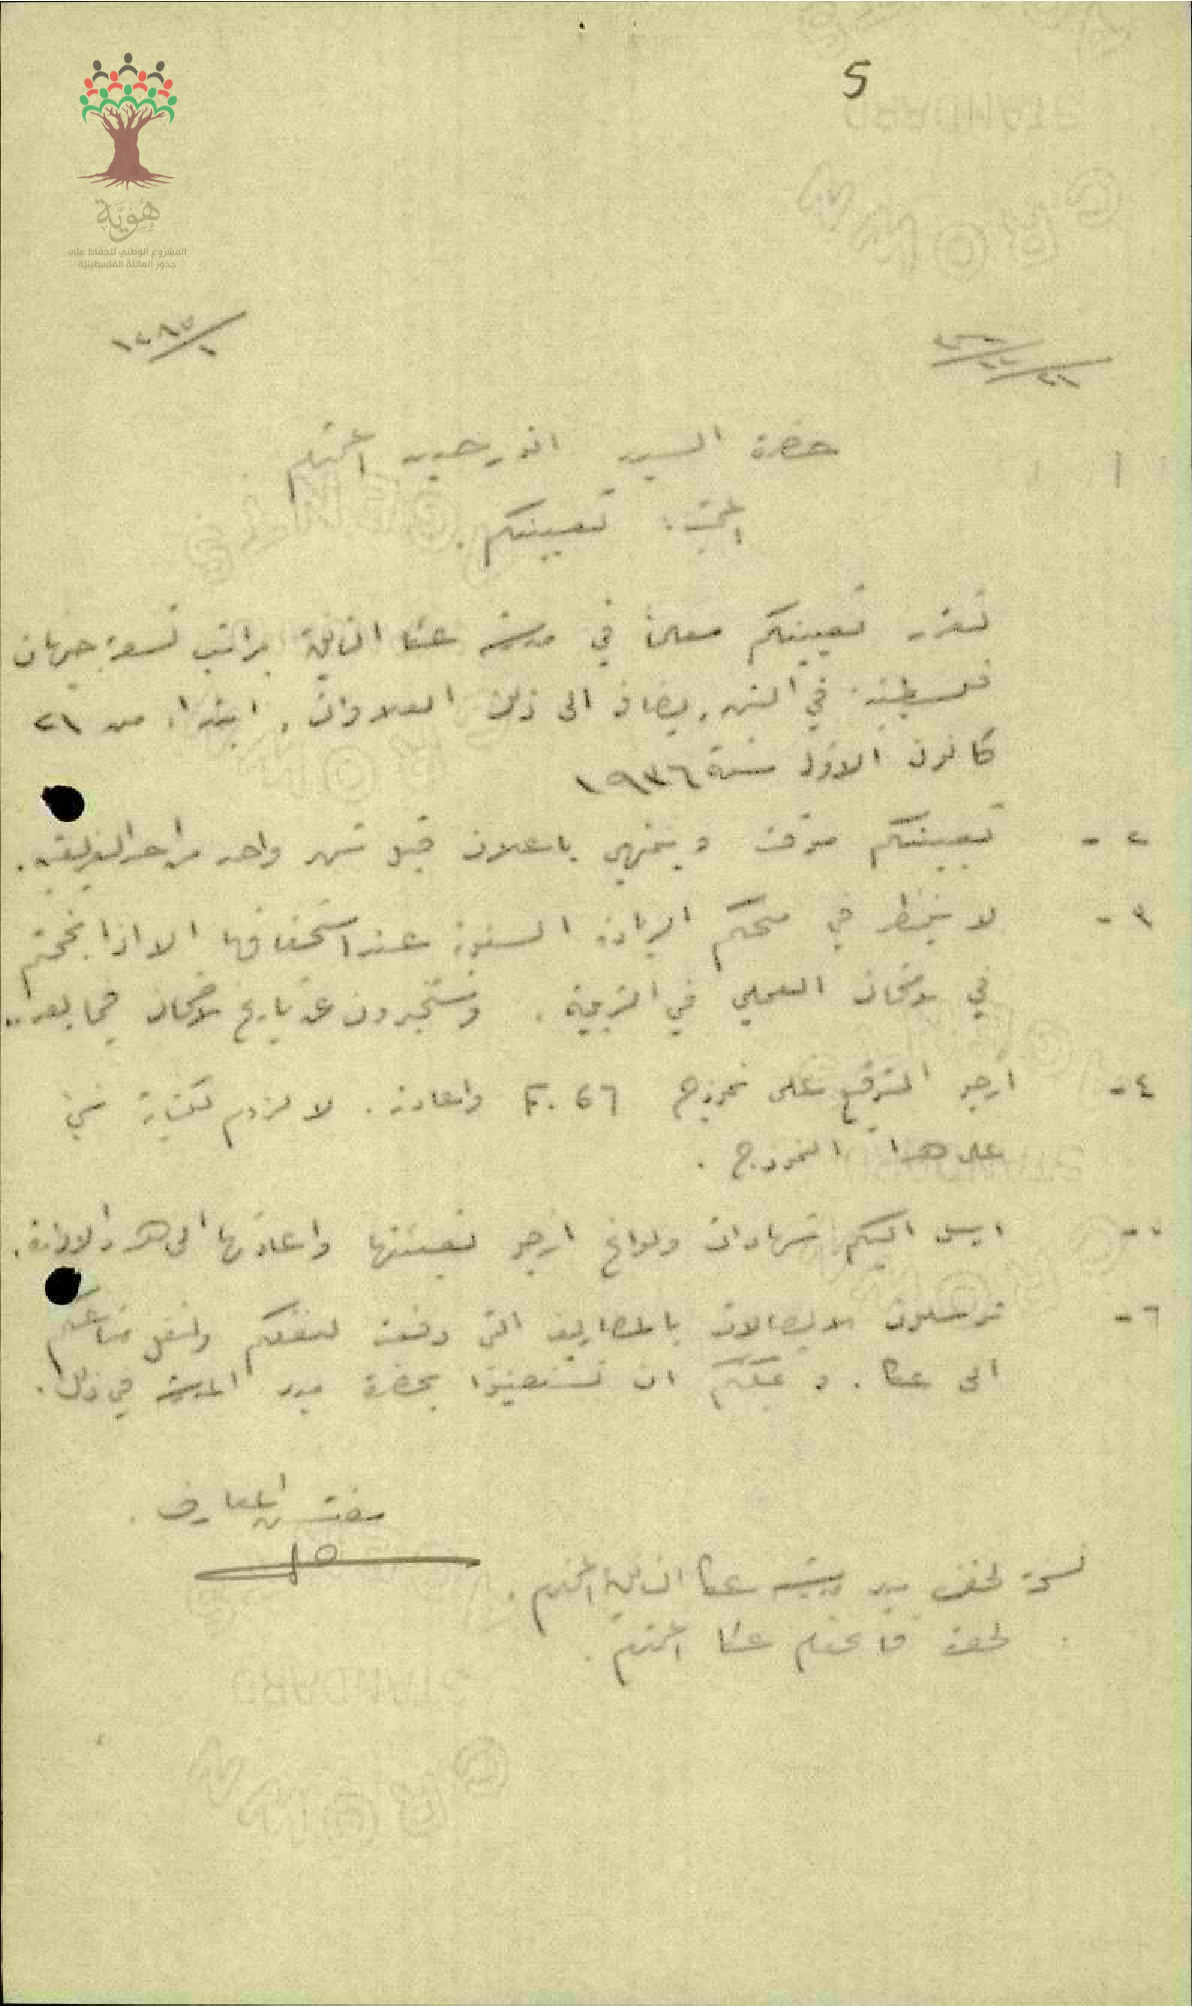 5
هوية
المشروع الوطني للحفاظ على
جذور العائلة الفلسطينية
حضرة السيد انور حديد المحترم
تعيينكم.
تقرر تعيينكم معلما في مدرسة عكا الثانوية براتب تسعة جنيهات
فلسطينية في الشهر، يضاف الى ذلك العلاوات، ابتداء من ٢١
كانون الاول سنة ١٩٣٦
٢ - تعيينكم موقت وينتهي باعلان قبل شهر واحد من احد الفريقين.
٣ - لا ينظر في منحكم الزيادة السنوية عند استحقاقها الا اذا نجحتم
في الامتحان العملي في التربية. وستخبرون عن تاريخ الامتحان فيما بعد.
٤ - ارجو التوقيع على نموذج F. 67 واعادته. لا لزوم لكتابة شيء
على هذا النموذج.
ارسل اليكم شهادات ولوائح ارجو تعبئتها واعادتها الى هذه الادارة.
٦ - ترسلون الايصالات بالمصاريف التي دفعت لنقلكم ولنقل متاعكم
الى عكا. ويمكنكم ان تستعينوا بحضرة مدير المدرسة في ذلك.
مفتش المعارف.
نسخة لحضرة مدير مدرسة عكا الثانوية المحترم.
لحضرة قائمقام عكا المحترم.